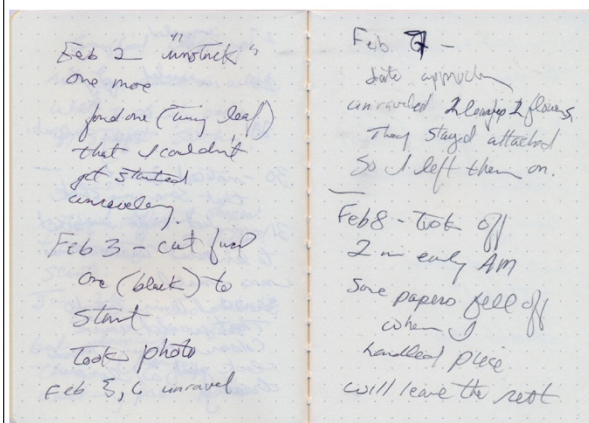 Feb 2 "unstuck"
one more
found one (tiny leaf)
that I couldn't
get started
unraveling.
Feb 3 - cut
one (black) to
start
Took photo
Feb 5, 6 unravel
Feb 7 -
date
unraveled 2 2 flowers
They stayed attached
So I left them on.
Feb 8 - Took off
2 in early AM
Some papers fell off
when I
handled piece
will leave the rest